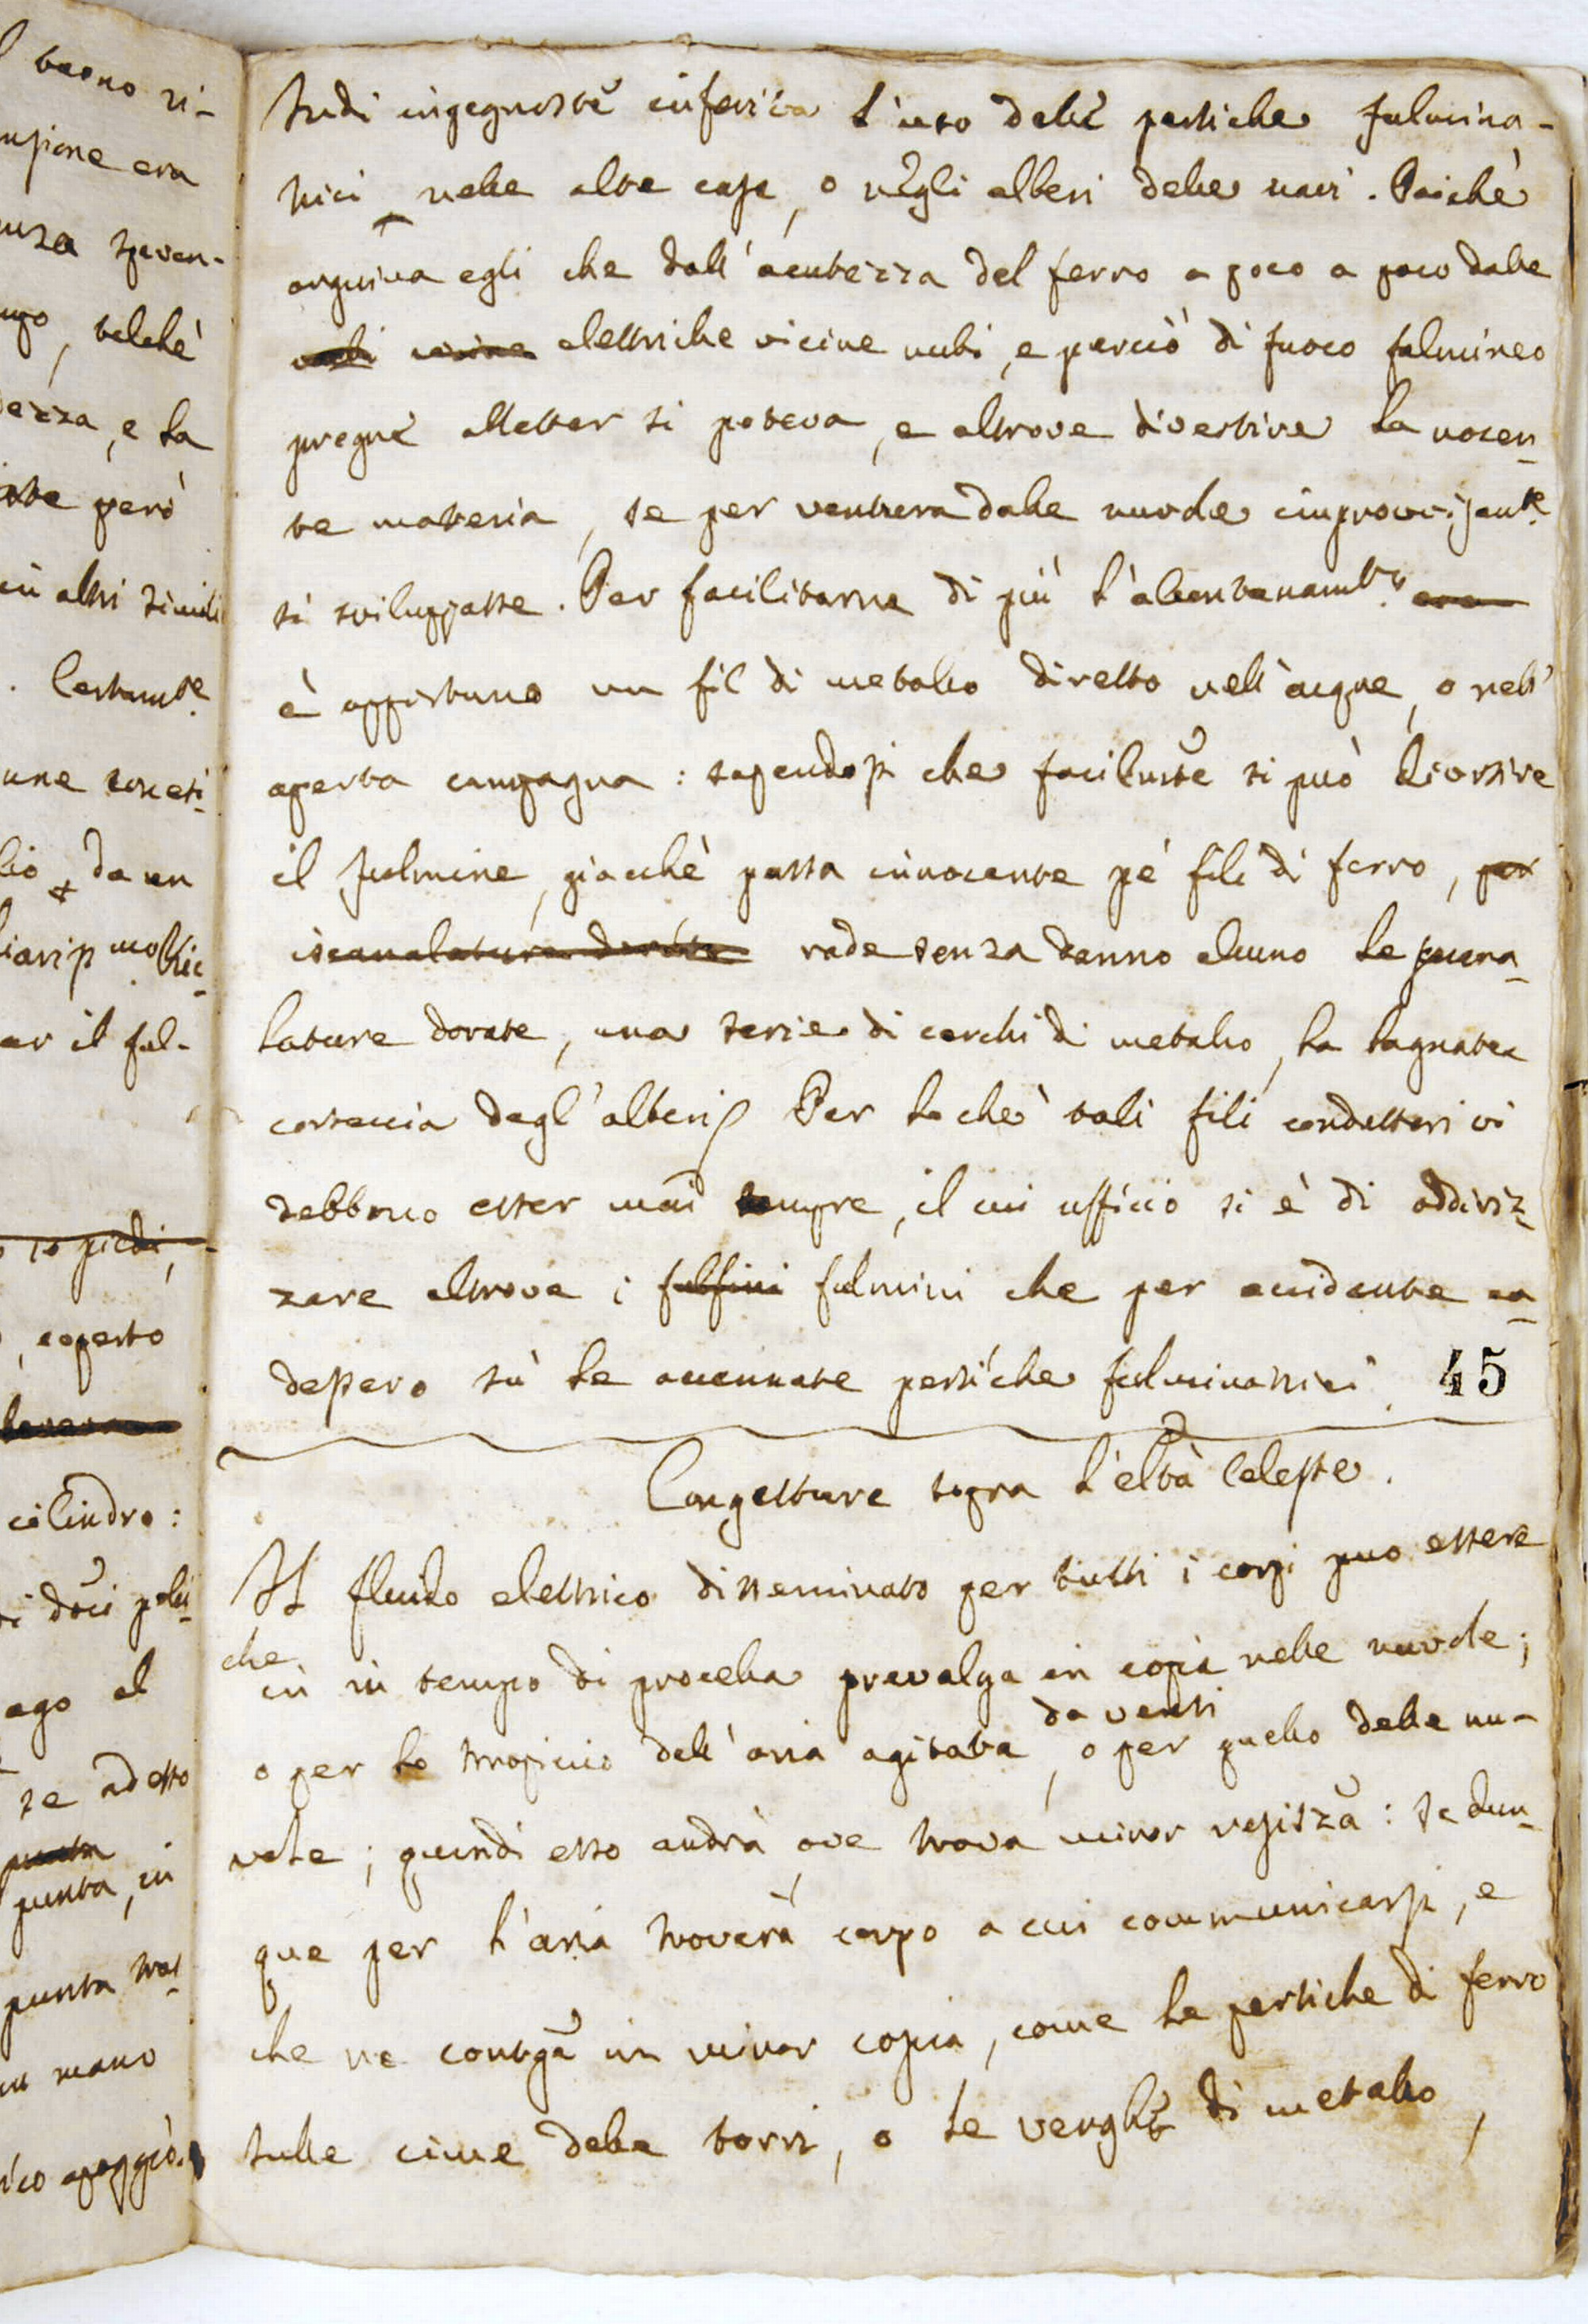 buono ri-
nsione era
nza spaven-
, talchè
ezza, e la
però
in altri simili
. Certamte.
une
da un
ar il ful-
piedi,
, coperto
cilindro:
ago al
se adesso
punta
punta, in
punta
in mano
ico appoggiò.
Indi ingegnoste inferiva l'uso delle pertiche fulmina-
trici nelle alte case, o negli alberi delle navi. Poichè
arguiva egli che dall'acutezza del ferro a poco a poco dalle
elettriche vicine nubi, e perciò di fuoco fulmineo
pregne alletter si poteva, e altrove divertire la nocen-
te materia, se per ventura dalle nuvole improvvisante
si sviluppasse. Per facilitarne di più l'alontanamto.
è opportuno un fil di metallo diretto nell'acque, o nell'
aperta campagna: sapendosi che facilmte si può divertire
il fulmine, giacchè passa innocente pe' fili di ferro, per
iscanalature dorate rade senza danno alcuno le scana-
lature dorate, una serie di cerchi di metallo, la bagnata
corteccia degl'alberi. Per lo chè tali fili conduttori vi
debbono esser mai sempre, il cui ufficio si è di addiriz-
zare altrove i fulfini fulmini che per accidente ca-
dessero sù le accennate pertiche fulminatrici. 45
Congetture sopra l'eltà Celeste.
Il fluido elettrico disseminato per tutti i corpi può essere
che
in in tempo di procella prevalga in copia nelle nuvole;
da venti
o per lo tropiccio dell'aria agitata, o per quello delle nu-
vole; quindi esso andrà ove trova minor resistza: se dun-
que per l'aria troverà corpo a cui communicarsi, e
che ne contga in minor copia, come le pertiche di ferro
sulle cime delle torri, o le verghe di metallo,